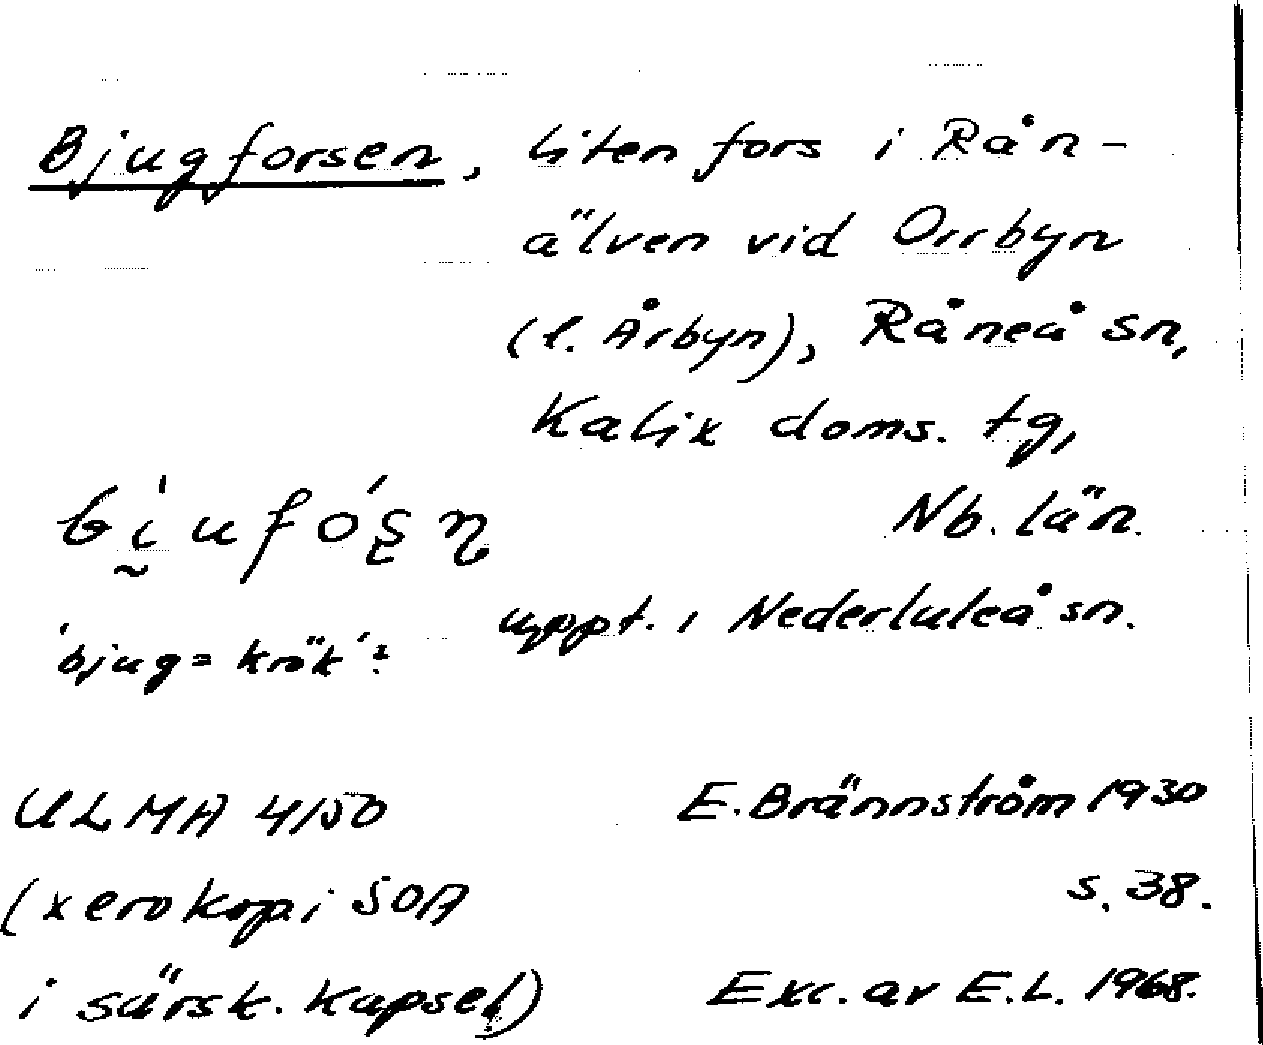 Bjugforsen, liten fors i Rån-
älven vid Orrbyn
(l. Årbyn), Råneå sn,
Kalix doms. tg,
Nb. län.
uppt. i Nederluleå sn.
'bjug = krök'?
ULMA 4150
E. Brännström 1930
s. 38.
(xerokopi SOA
i särsk. kapsel)
Exc. av E.L. 1968.